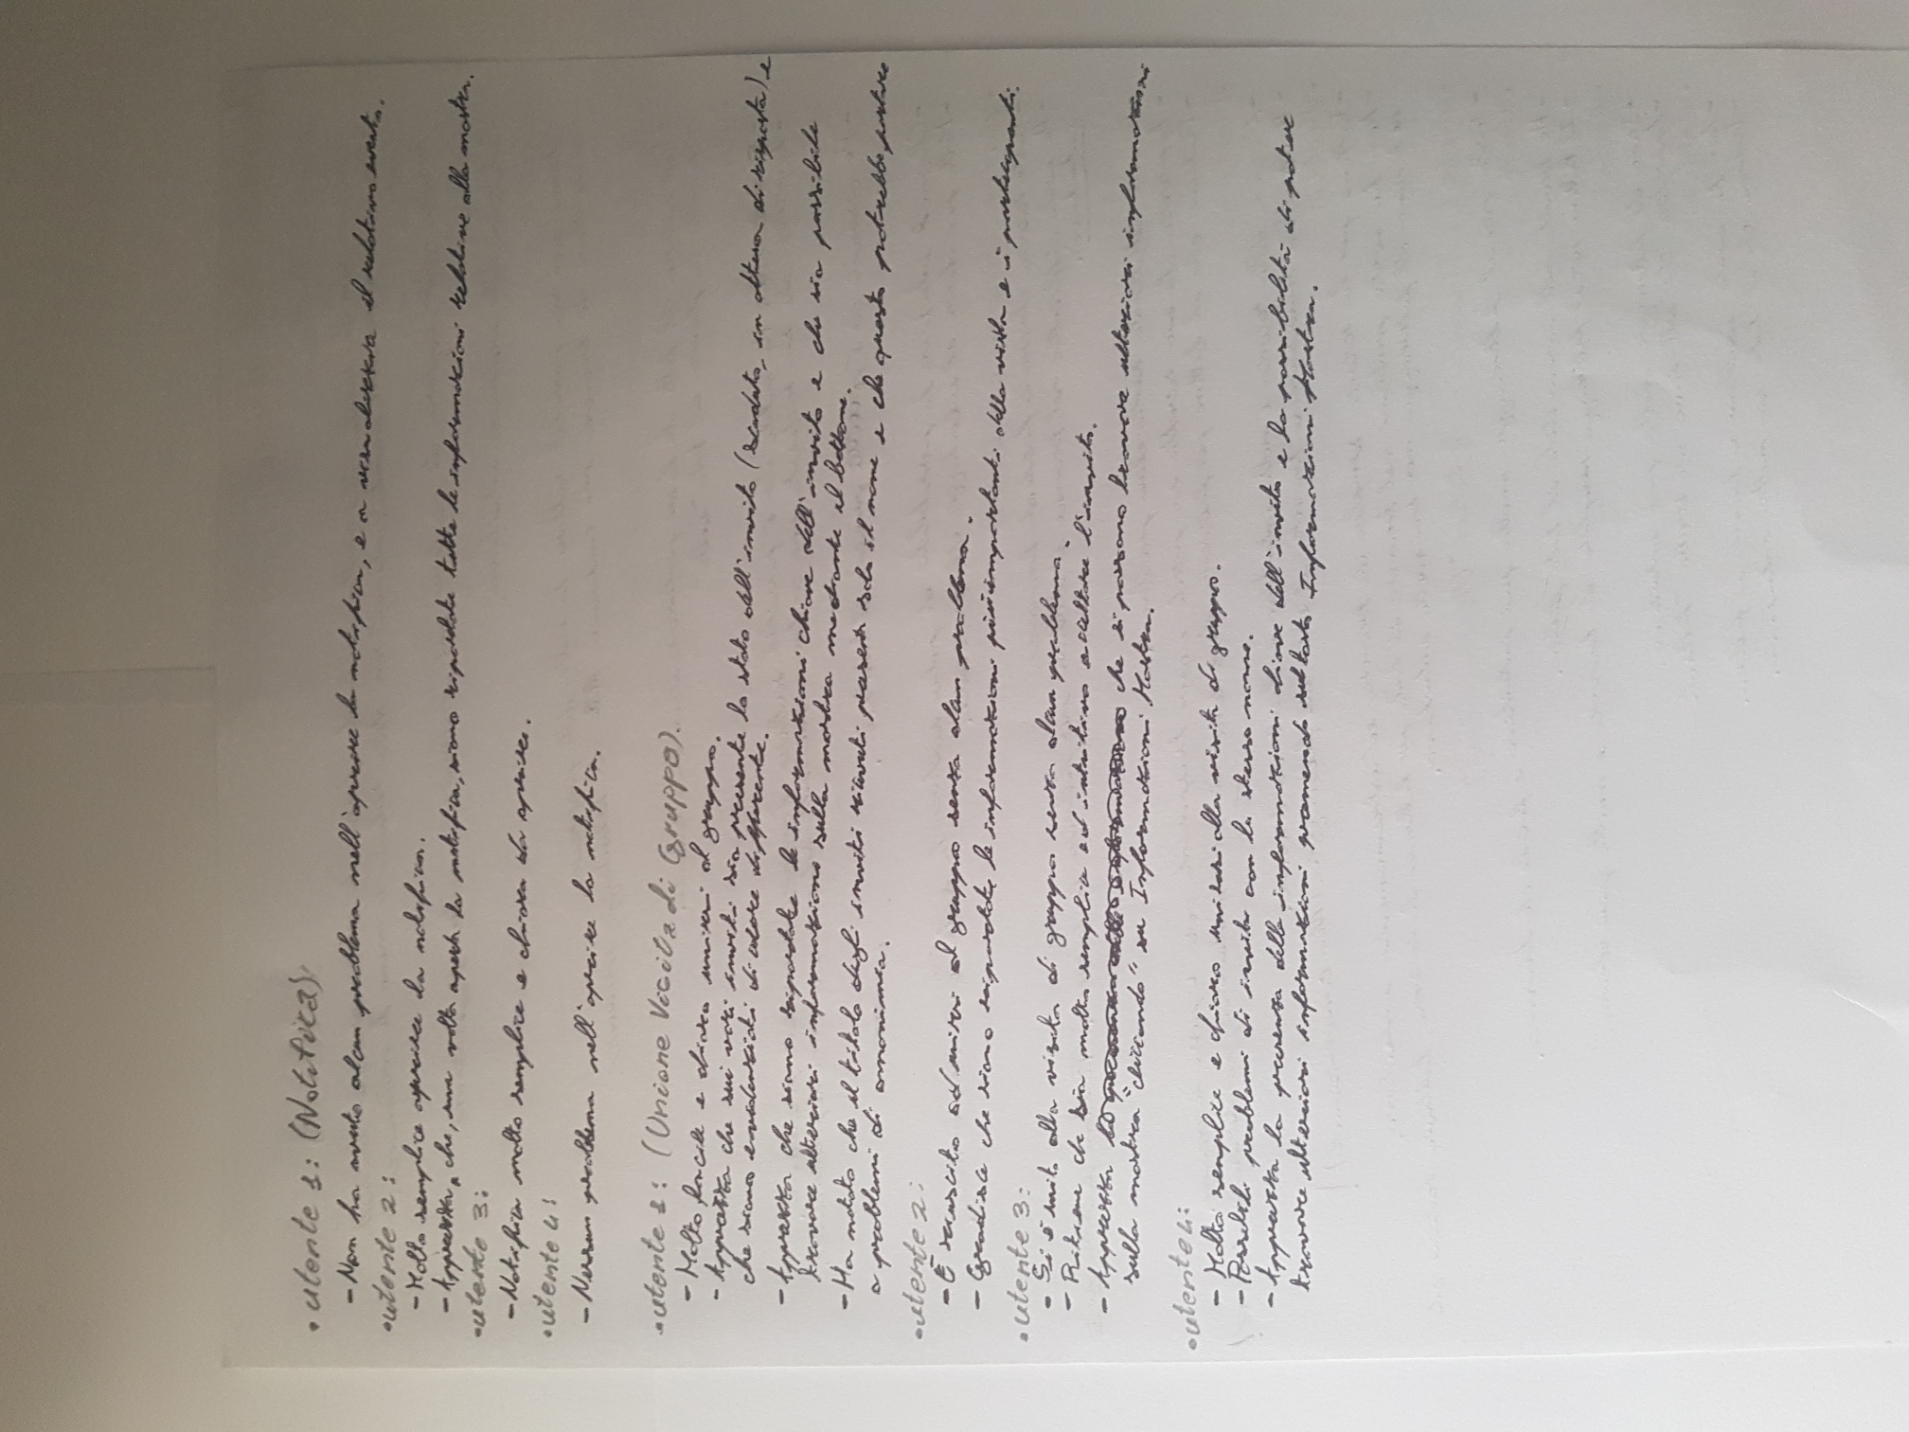 • utente 1: (Notifica)
- Non ha avuto alcun problema nell'aprire la notifica, e a visualizzare il relativo evento.
• utente 2:
- Molto semplice aprire la notifica.
- Apprezza, che, una volta aperta la notifica, siano riportate tutte le informazioni relative alla mostra.
• utente 3:
- Notifica molto semplice e chiara da aprire.
• utente 4:
- Nessun problema nell'aprire la notifica.
• utente 1: (Unione Visita di Gruppo).
- Molto facile e chiaro unirsi al gruppo.
- Apprezza che sui vari inviti sia presente lo stato dell'invito (scaduto, in attesa di risposta) e
che siano evidenziati di colore differente.
- Apprezza che siano riportate le informazioni chiave dell'invito e che sia possibile
trovare ulteriori informazioni sulla mostra mediante il bottone.
- Ha notato che il titolo degli inviti ricevuti presenti solo il nome e che questo potrebbe portare
a problemi di omonimia.
• utente 2:
- È riuscito ad unirsi al gruppo senza alcun problema.
- Gradisce che siano riportate le informazioni più importanti della visita e i partecipanti.
• utente 3:
- Si è unito alla visita di gruppo senza alcun problema.
- Ritiene che sia molto semplice ed intuitivo accettare l'invito.
- Apprezza che si possano trovare ulteriori informazioni
sulla mostra "cliccando" su Informazioni Mostra.
• utente 4:
- Molto semplice e chiaro unirsi alla visita di gruppo.
- Possibili problemi di inviti con lo stesso nome.
- Apprezza la presenza delle informazioni chiave dell'invito e la possibilità di poter
trovare ulteriori informazioni premendo sul tasto Informazioni Mostra.